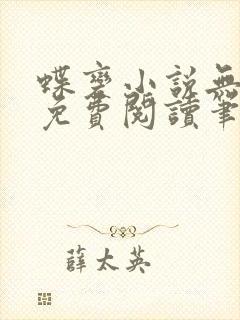 蝶变小说無
免費閱讀筆
薛太英